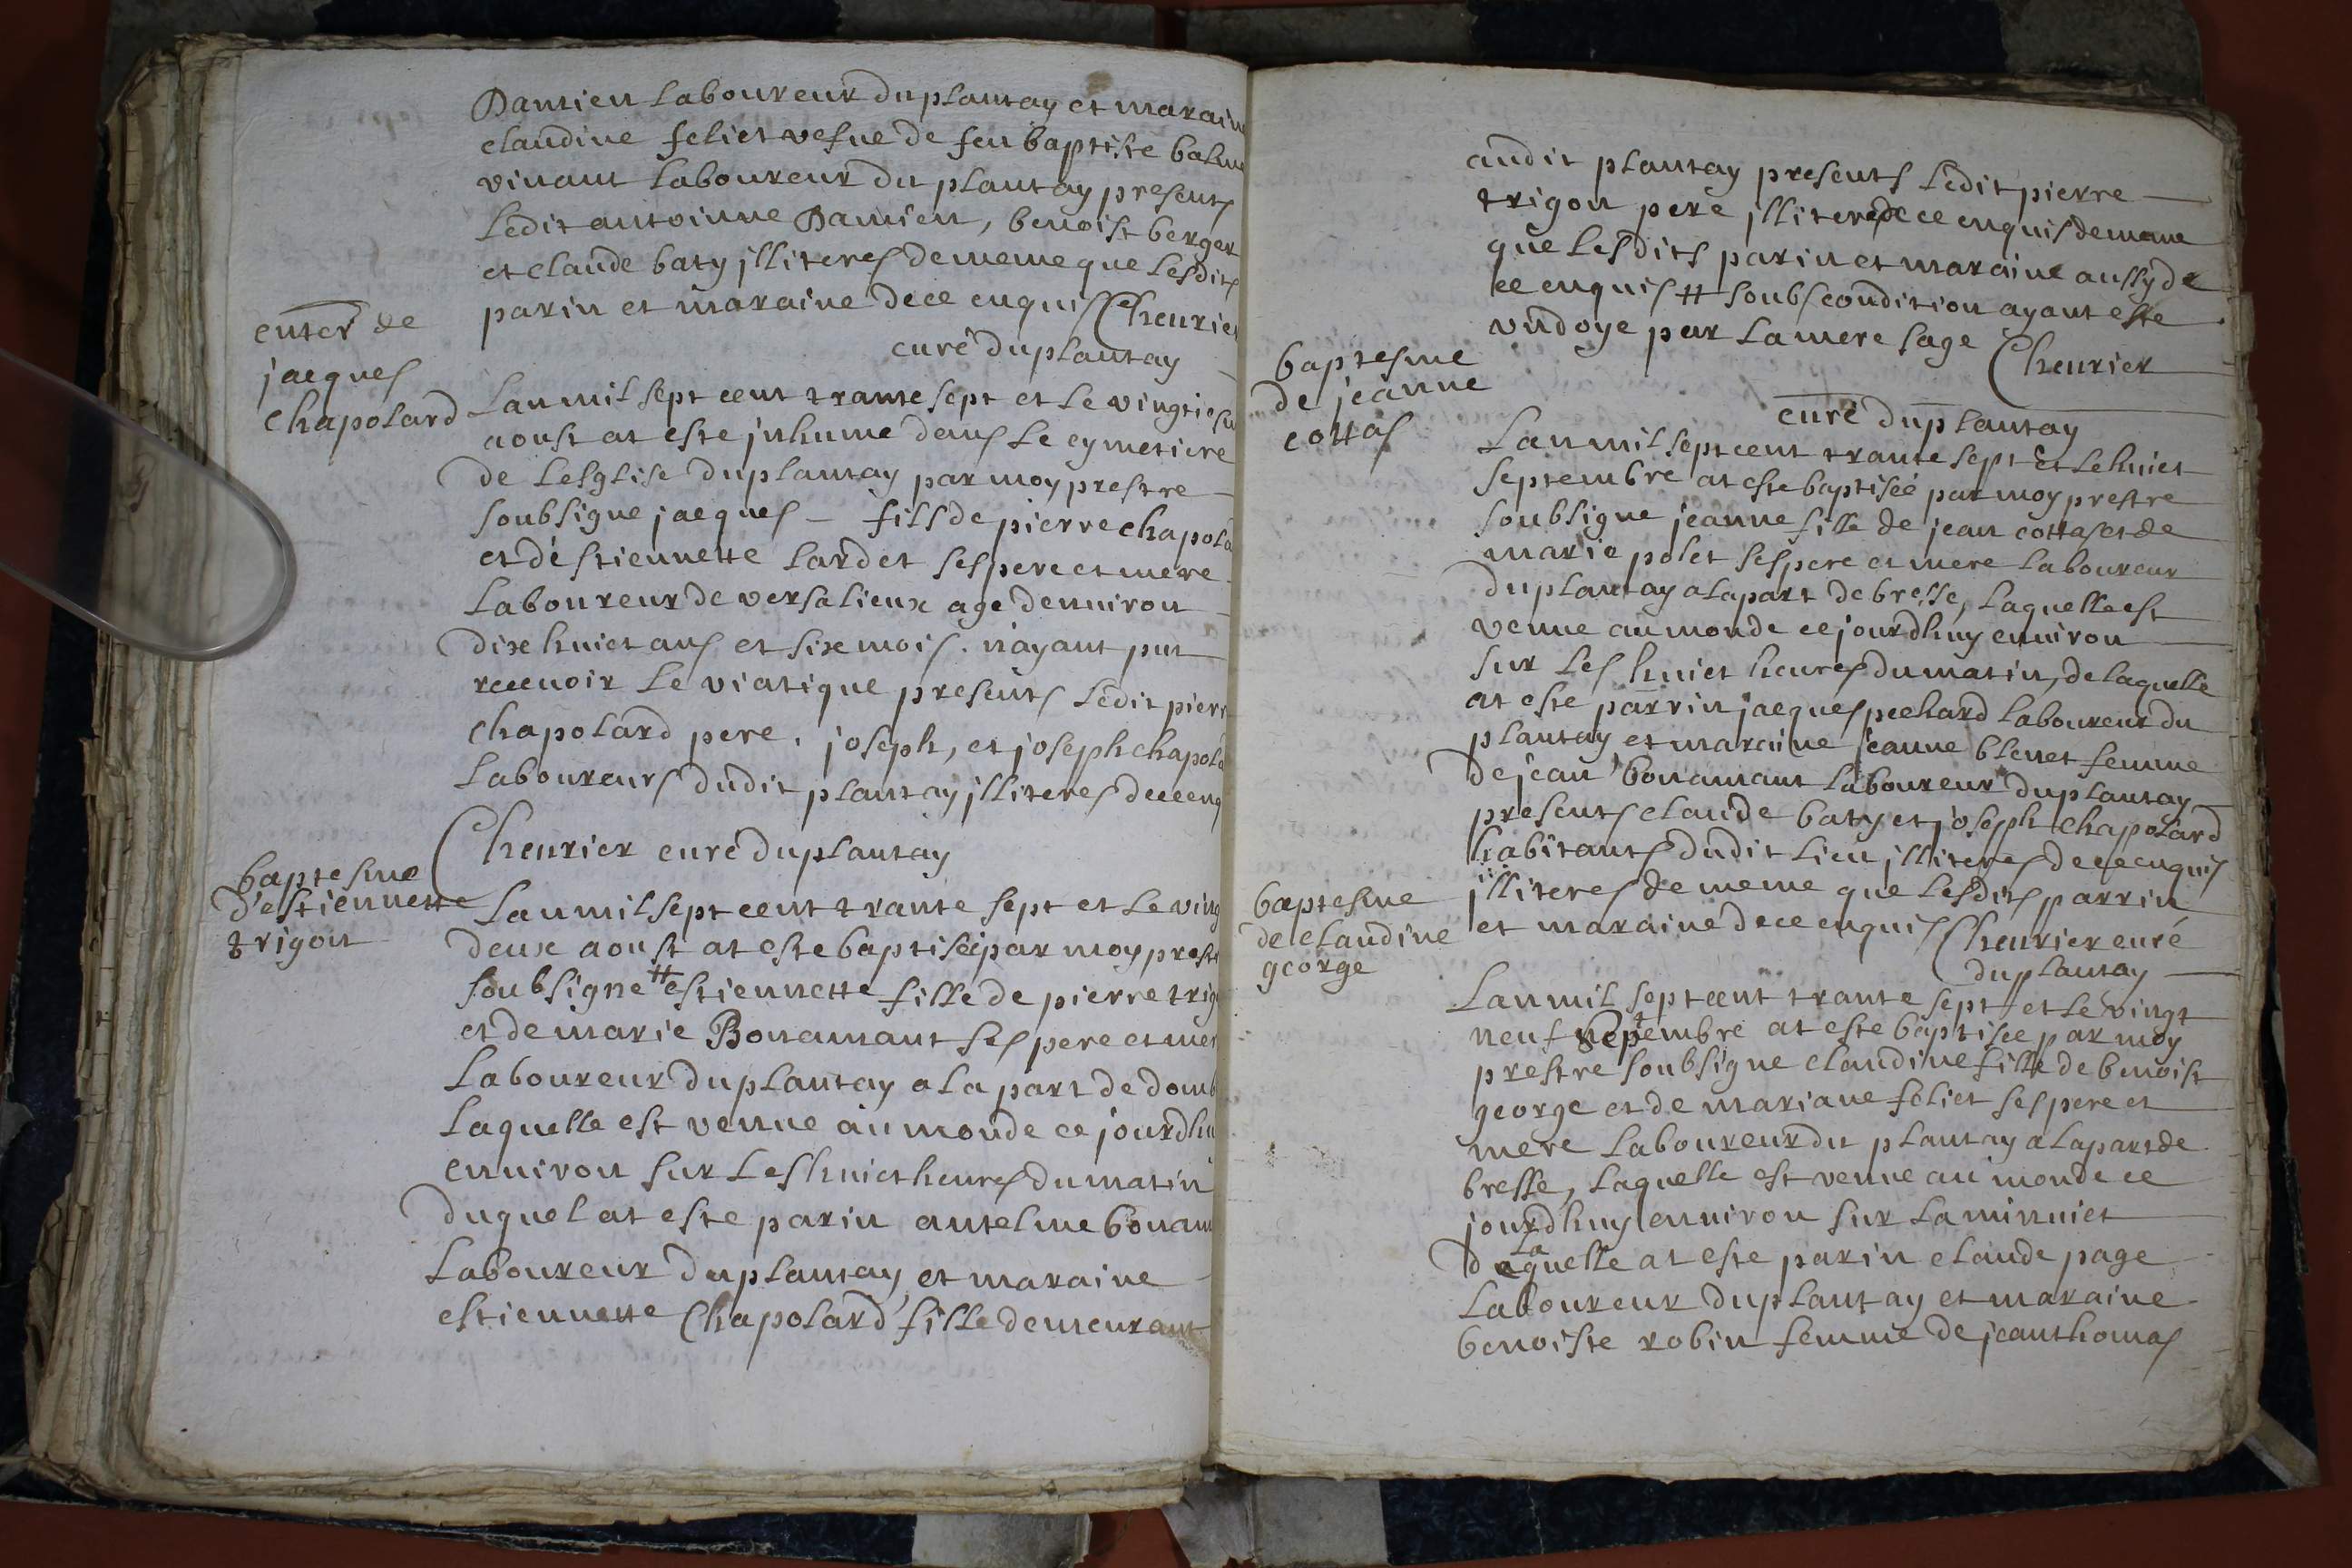 Damien laboureur du plantay et marain
claudine feliet vefue de feu baptiste
vivant laboureur du plantay presents
ledit antoinne Damien, benoist berger
et claude baty jlliteres de meme que lesdits
parin et maraine de ce enquis Cheurier
curé du plantay
enter de
jacques
chapolard
Lan mil sept cent trante sept et le vingtiesm
aoust at este jnhume dans le cymetiere
de lesglise du plantay par moy prestre
soubsigne jacques – fils de pierre chapola
et déstiennette lardet ses pere et mere
laboureur de versalieux age denuiron
dixhuict ans et six mois. n'ayant put
recevoir le viatique presents ledit pierr
chapolard pere, joseph, et joseph chapola
laboureurs dudit plantay jlliteres de ce enq
Cheurier curé du plantay
baptesme
d'estiennette
trigon
Lan mil sept cent trante sept et le ving
deux aoust at este baptiseé par moy prest
soubsigne # estiennette fille de pierre trig
et de marie Bonamant ses pere et mer
laboureur du plantay a la part de domb
laquelle est venue au monde ce jourdhu
enuiron sur les huict heures du matin
duquel at este parin anselme bonam
laboureur du plantay, et maraine
estiennette Chapolard fille demeurant
audit plantay presents ledit pierre
trigon pere jllitere de ce enquis de meme
que lesdits parin et maraine aussy de
ce enquis # soubs condition ayant este
vndoye par la mere sage Cheurier
curé du plantay
baptesme
de jeanne
cottas
Lan mil sept cent trante sept et le huict
septembre at este baptisée par moy prestre
soubsigne jeanne fille de jean cottas et de
marie polet ses pere et mere laboureur
du plantay a la part de bresse, laquelle est
venue au monde ce jourdhuy enuiron
sur les huict heures du matin, de laquelle
at este parrin jacques pechard laboureur du
plantay et maraine jeanne blenet femme
de jean bonamant laboureur du plantay
presents claude baty et joseph chapolard
habitants dudit lieu jlliteres de ce enquis
jlliteres de meme que lesdits parrin
et maraine de ce enquis Cheurier curé
du plantay
baptesme
de claudine
george
Lan mil sept cent trante sept et le vingt
neuf septembre at este baptisee par moy
prestre soubsigne claudine fille de benoist
george et de mariane feliet ses pere et
mere laboureur du plantay a la part de
bresse, laquelle est venue au monde ce
jourdhuy enuiron sur la minuict
de laquelle at este parin claude page
laboureur du plantay et maraine
benoiste robin femme de jean thomas